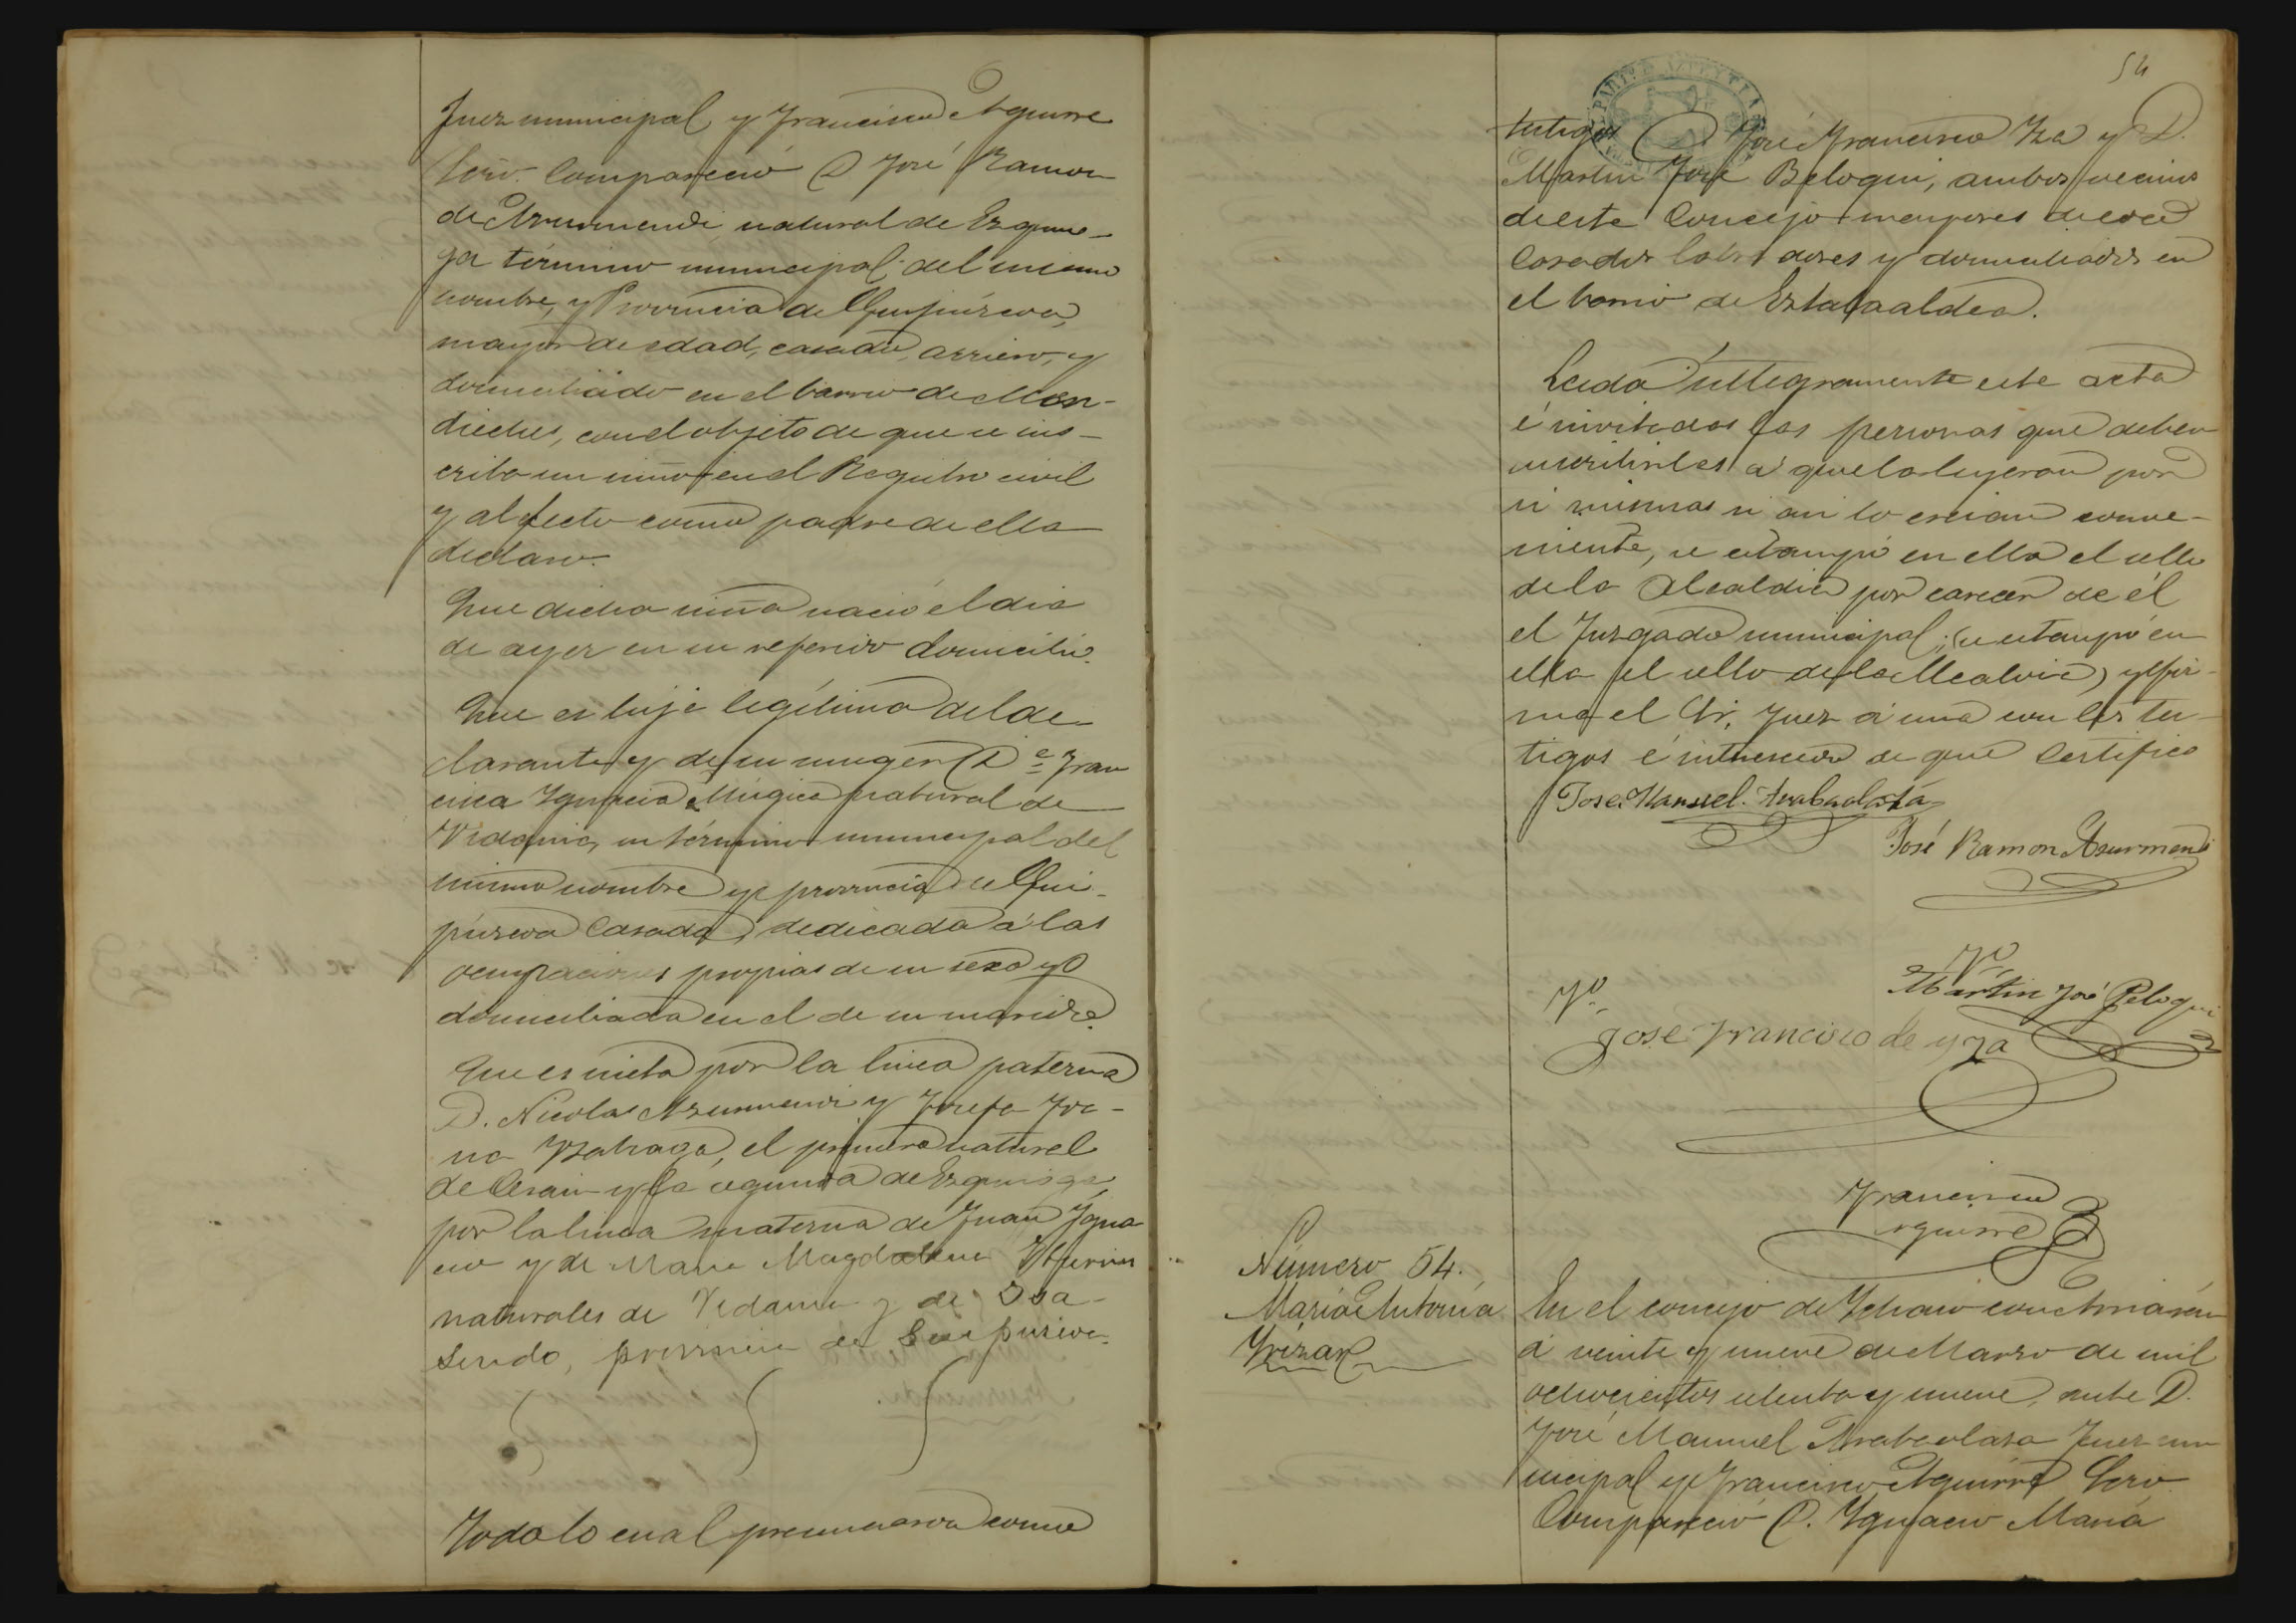 Juez municipal y Francisco Aguirre
Scrio. Compareció D José Ramon
de Azurmendi natural de Ezquio-
ga término municipal del mismo
nombre, y Provincia de Guipúzcoa,
mayor de edad, casado, arriero, y
domiciliado en el barrio de
con el objeto de que se ins-
criba una niña en el Registro civil
y al efecto como padre de ella
declaro.
Que dicha niña nació el dia
de ayer en su referido domicilio.
Que es hija legítima del de-
clarante y de su muger Dª Fran
cisca Ygnacia Múgica natural de
Vidania, en término municipal del
mismo nombre y provincia de Gui-
púzcoa Casada, dedicada á las
ocupaciones propias de su sexo y
domiciliada en el de su marido.
Que es nieta por la linea paterna
D. Nicolas Azurmendi y Josefa Joa-
na el primero natural
de Cerain y la segunda de Ezquioga,
por la linea materna de Juan Ygna-
cio y de Maria Magdalena
naturales de Vidania y de
provincia de Guipuzcoa.
Todo lo cual presenciaron como
54
testigos D José Francisco Yza y D.
Martin José Beloqui, ambos vecinos
de este Concejo mayores de edad
Casados labradores y domiciliados en
el barrio de
Leida íntegramente este acta
é invitadas las personas que deben
suscribirles á que la leyeran por
si mismas si asi lo creian conve-
niente, se estampó en ella el sello
de la Alcaldia por carecer de él
el Juzgado municipal; (se estampó en
ella el sello de la Alcaldia) y fir-
ma el Sr. Juez á una con los tes-
tigos é interesado de que Certifico
Jose Manuel. Arabaolaza
José Ramon Azurmendi
Martin José Beloqui
Jose Francisco de yza
Francisco
Aguirre
Número 54.
Maria Antonia
Yrizar
En el concejo de Ychaso con Arriarán
á veinte y nueve de Marzo de mil
ochocientos setenta y nueve, ante D.
José Manuel Arabaolaza Juez mu
nicipal y Francisco Aguirre Scrio
Compareció D. Ygnacio Maria